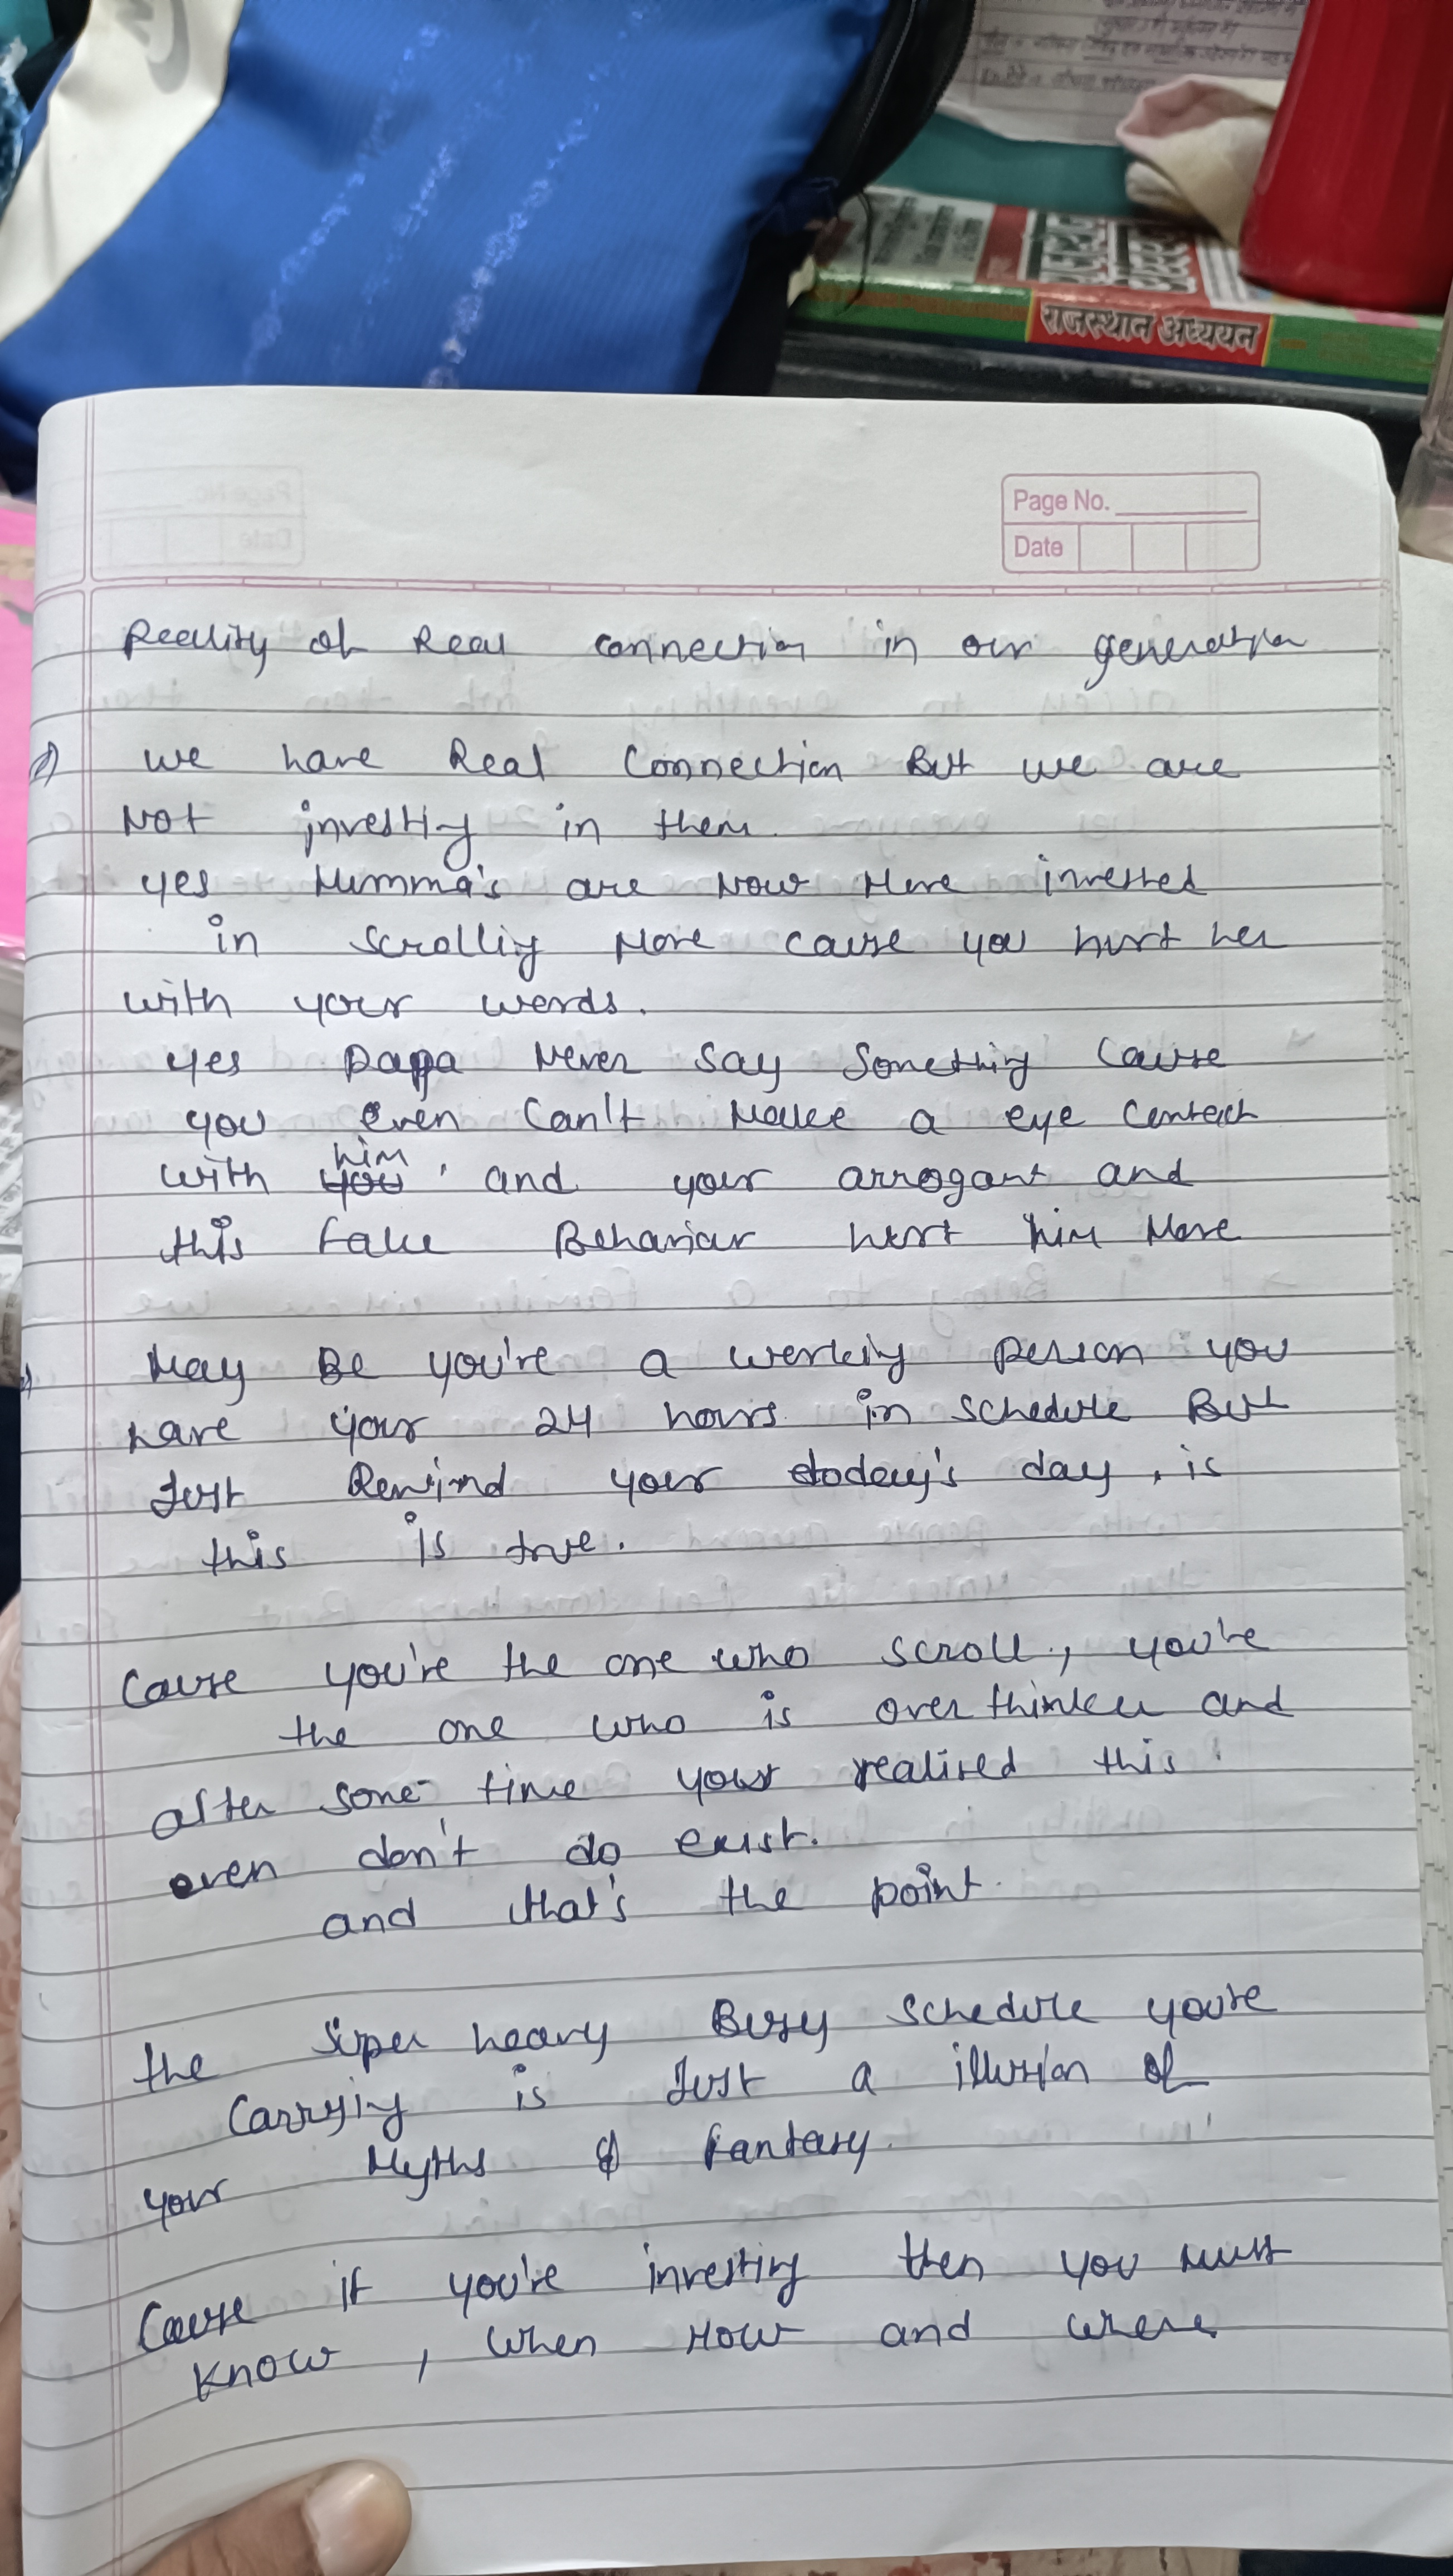 राजस्थान अध्ययन
Page No.
Date
Reality of Real connection in our generation
1) we have Real Connection But we are
Not investing in them.
yes Mumma's are Now More invested
in Scrolling More cause you hurt her
with your words.
yes papa Never Say Something Cause
you even Can't Make a eye Contact
with you him, and your arrogant and
this fake Behaviour hurt him More
May Be you're a working person you
have your 24 hours in schedule But
Just Rewind your today's day, is
this is true.
Cause you're the one who scroll, you're
the one who is over thinker and
after some time your realised this
even don't do exist.
and that's the point.
the super heavy Busy schedule you're
Carrying is Just a illusion of
your Myths & fantasy.
Cause if you're investing then you must
know, when How and where